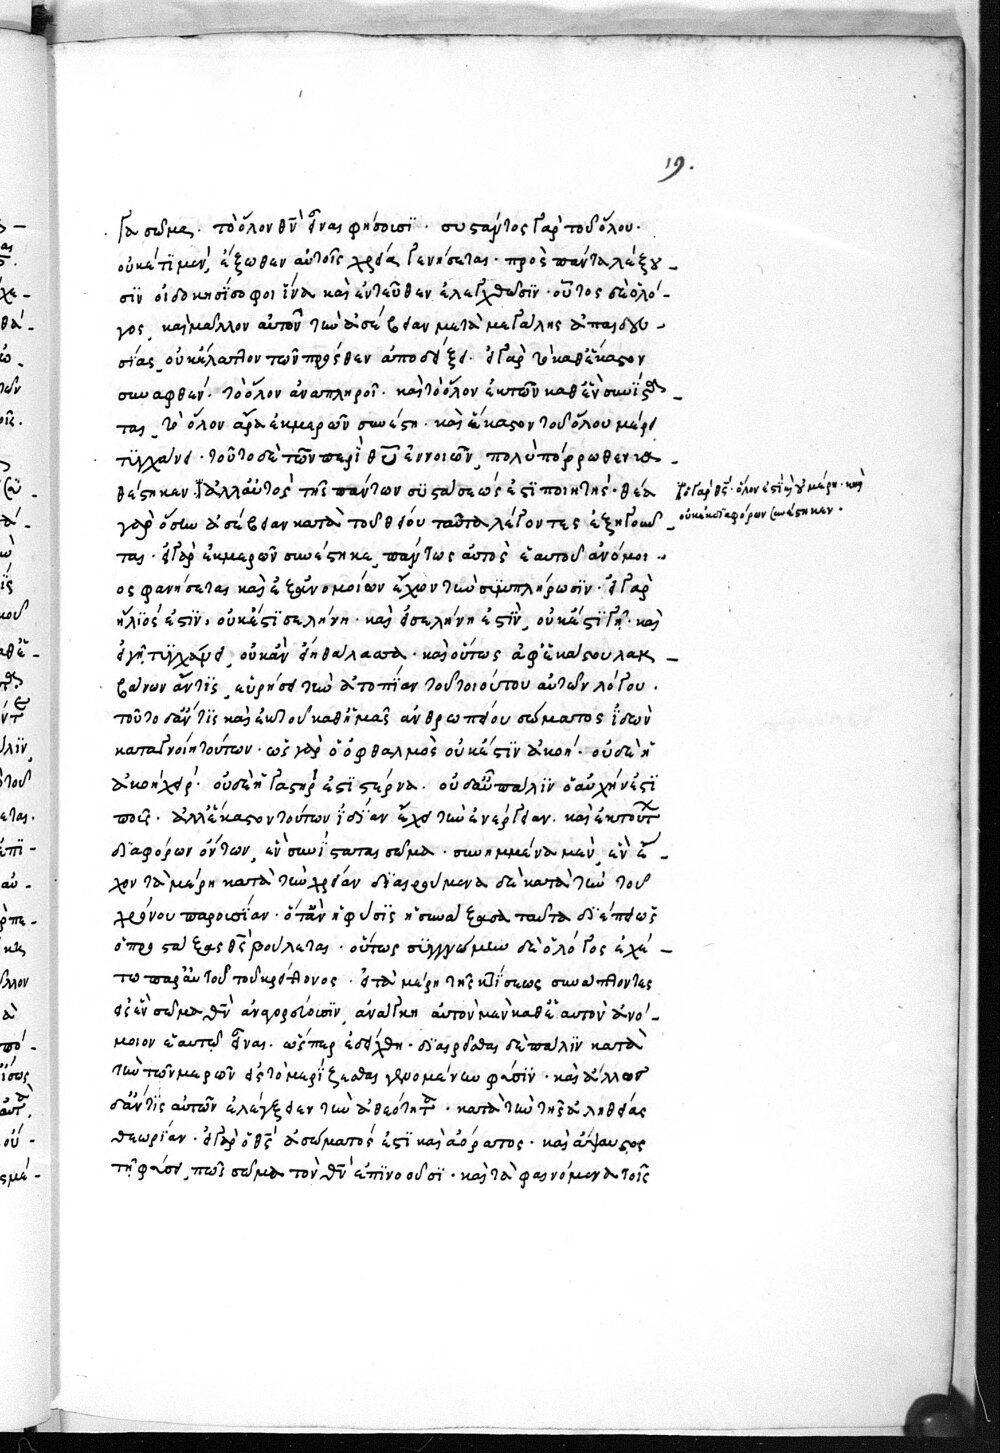 19.
γα σῶμα · τὸ ὅλον θν̄ εἶναι φήσουσι · συστάντος γὰρ τοῦ ὅλου ·
οὐκέτι μὲν, ἔξωθεν αὐτοῖς χρεία γενήσεται · πρὸς πάντα λέξου-
σιν οἱ δοκησίσοφοι ἵνα καὶ ἐντεῦθεν ἐλεγχθῶσιν · οὗτος δὲ ὁ λό-
γος, καὶ μᾶλλον αὐτῶν τὴν ἀσέβειαν μετὰ μεγάλης ἀπαιδευ-
σίας, οὐκ ἔλαττον τῶν πρόσθεν ἀποδείξει · εἰ γὰρ τὰ καθ' ἕκαστον
συναφθέν · τὸ ὅλον ἀναπληροῖ · καὶ τὸ ὅλον ἐκ τῶν καθ' ἓν συνίστα-
ται, τὸ ὅλον ἄρα ἐκ μερῶν συνέστη · καὶ ἕκαστον τοῦ ὅλου μέρει
τυγχάνει · τοῦτο δὲ τῶν περὶ θῡ ἐννοιῶν, πολὺ πόρρωθεν κα-
θέστηκεν ἀλλ' αὐτὸς τῆς πάντων συστάσεώς ἐστι ποιητής · θέα
ὁ γὰρ θς̄ · ὅλον ἐστὶ καὶ οὐ μέρη · καὶ
οὐκ ἐκ διαφόρων συνέστηκεν ·
γὰρ ὅσην ἀσέβειαν κατὰ τοῦ θείου ταῦτα λέγοντες ἐξηγοῦν-
ται · εἰ γὰρ ἐκ μερῶν συνέστηκε, πάντως αὐτὸς ἑαυτοῦ ἀνόμοι-
ος φανήσεται καὶ ἐξ ἀνομοίων ἔχων τὴν συμπλήρωσιν · εἰ γὰρ
ἥλιός ἐστιν, οὐκ ἔστι σελήνη · καὶ εἰ σελήνη ἐστὶν, οὐκ ἔστι γῆ · καὶ
εἰ γῆ τυγχάνει, οὐκ ἂν εἴη θάλασσα · καὶ οὕτως ἐφ' ἑκάστου λαμ-
βάνων ἄν τις, εὑρήσει τὴν ἀτοπίαν τοῦ τοιούτου αὐτῶν λόγου ·
τοῦτο δ' ἄν τις καὶ ἐκ τοῦ καθ' ἡμᾶς ἀνθρωπείου σώματος ἰδὼν
καταγνοίη τούτων · ὡς γὰρ ὁ ὀφθαλμὸς οὐκ ἔστιν ἀκοή · οὐδὲ ἡ
ἀκοὴ χείρ · οὐδὲ ἡ γαστήρ ἐστι στέρνα · οὐδ' αὖ πάλιν ὁ αὐχήν ἐστι
ποῦς · ἀλλ' ἕκαστον τούτων ἰδίαν ἔχει τὴν ἐνέργειαν · καὶ ἐκ τούτ
διαφόρων ὄντων, ἓν συνίσταται σῶμα · συνημμένα μὲν, ἓν ἔ-
χον τὰ μέρη κατὰ τὴν χρείαν διαιρούμενα δὲ κατὰ τὴν τοῦ
χρόνου παρουσίαν · ὅτ' ἂν ἡ φύσις ἡ συνάξασα ταῦτα διέλῃ ὡς
ὁ προστάξας θς̄ βούλεται · οὕτως συγγνώμην δὲ ὁ λόγος ἐχέ-
τω παρ' αὐτοῦ τοῦ κρείττονος · εἰ τὰ μέρη τῆς κτίσεως συνάπτοντες
εἰς ἓν σῶμα θν̄ ἀναγορεύουσιν, ἀνάγκη αὐτὸν μὲν καθ' ἑαυτὸν ἀνό-
μοιον ἑαυτῷ εἶναι · ὥσπερ ἐδείχθη · διαιρεῖσθαι δὲ πάλιν κατὰ
τὴν τῶν μερῶν εἰς τὸ μερίζεσθαι γενομένην φύσιν · καὶ ἄλλως
δ' ἄν τις αὐτῶν ἐλέγξειεν τὴν ἀθεότητα · κατὰ τὴν τῆς ἀληθείας
θεωρίαν · εἰ γὰρ ὁ θς̄ ἀσώματός ἐστι καὶ ἀόρατος · καὶ ἄψαυστος
τῇ φύσει, πῶς σῶμα τὸν θν̄ ἐπινοοῦσι · καὶ τὰ φαινόμενα τοῖς